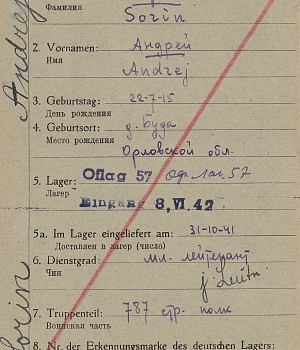 Фамилия
Sorin
2. Vornamen: Андрей
Имя
Andrej
3. Geburtstag: 22-7-15
День рождения
4. Geburtsort: д. Буда
Место рождения
Орловской обл.
5. Lager: Oflag 57 Оф. лаг. 57
Лагерь
Eingang 8. VI. 42
5a. Im Lager eingeliefert am: 31-10-41
Доставлен в лагерь (число)
6. Dienstgrad: мл. лейтенант
Чин
j. Leutn.
7. Truppenteil: 787 стр. полк
Воинская часть
8. Nr. der Erkennungsmarke des deutschen Lagers:
Andrej
Sorin